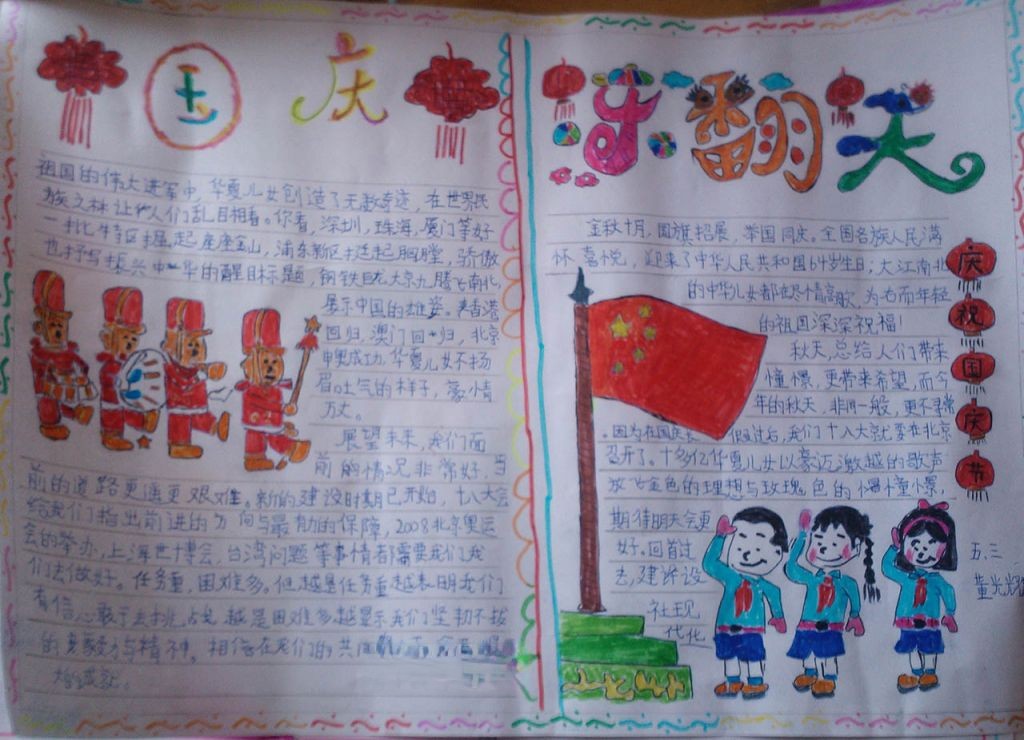 国庆
祖国的伟大进军中，华夏儿女创造了无数奇迹，在世界民
族之林让他人们乱目相看。你看，深圳，珠海，厦门等好
一批特区掘起座座金山，浦东新区挺起胸膛，骄傲
也抒写振兴中华的醒目标题，钢铁巨龙大京九腾飞南北，
展示中国的雄姿。来香港
回归，澳门回归，北京
申奥成功，华夏儿女不扬
眉吐气的样子，豪情
万丈。
展望未来，我们面
前的情况非常好，当
前的道路更遥更艰难。新的建设时期已开始，十八大会
给我们指出前进的方向与最有力的保障，2008北京奥运
会的举办，上海世博会，台湾问题等事情者都需要我们我
们去做好。任务重，困难多。但越是任务重越表明我们
有信心敢于去挑战越是困难多越显示我们坚韧不拔
的与精神。相信在我们的共同
翻天
金秋十月，国旗招展，举国同庆。全国各族人民满
怀喜悦，迎来了中华人民共和国64岁生日，大江南北
的中华儿女都在尽情高歌，为古而年轻
的祖国深深祝福！
秋天，总给人们带来
憧憬，更带来希望，而今
年的秋天，非同一般，更不寻常
。因为在国庆长假过后，我们十八大就要在北京
召开了。十多亿华夏儿女以豪迈激越的歌声
放飞金色的理想与玫瑰色的憧憬，
期待明天会更
好。回首过
去，建设
社现
代化
庆祝国庆节
五.三
董光耀